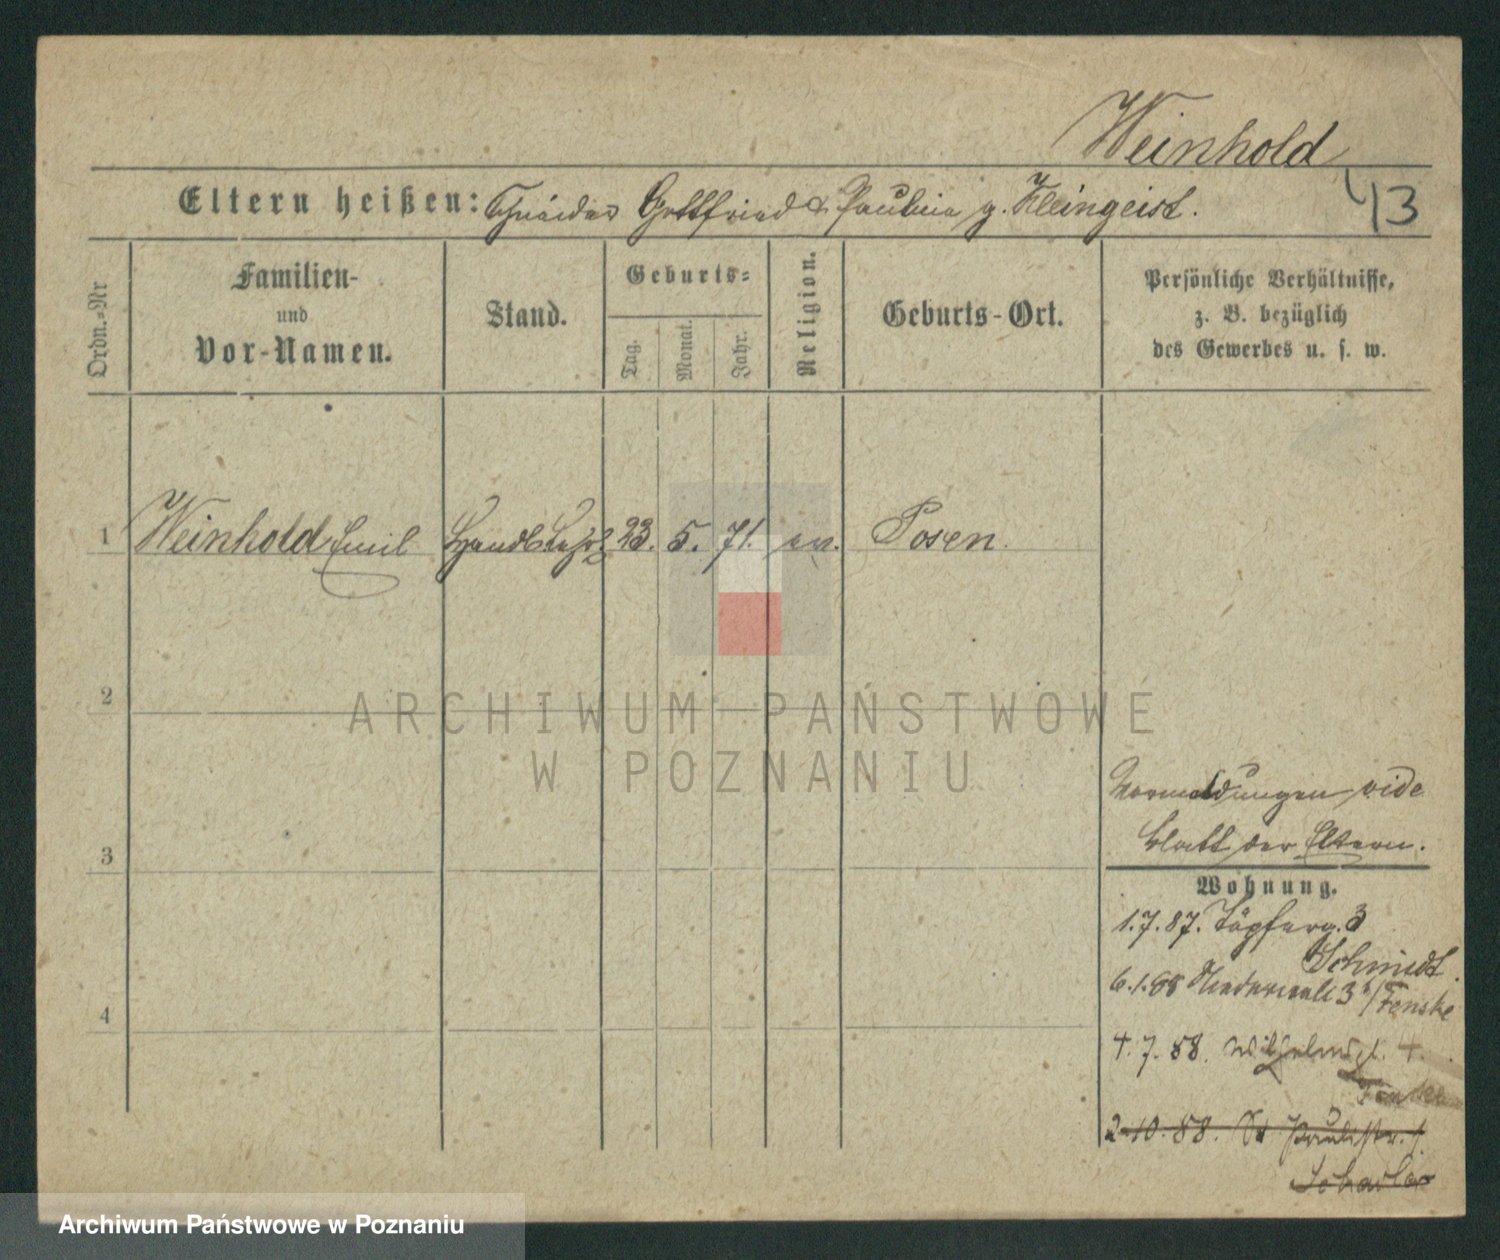 Weinhold
Eltern heißen: Schneider Gottfried & Pauline g. Kleingeist.
43
Ordn.=Nr
Familien-
und
Vor-Namen.
Stand.
Geburts=
Tag.
Monat.
Jahr.
Religion.
Geburts-Ort.
Persönliche Verhältnisse,
z. B. bezüglich
des Gewerbes u. s. w.
1 Weinhold Emil Handlslehrl 23. 5. 71. ev. Posen.
2
ARCHIWUM PAŃSTWOWE
W POZNANIU
Vormeldungen vide
Blatt der Eltern.
3
Wohnung.
1.7.87. Töpferg. 3
Schmidt.
6.1.88 Niederwall 3 b/Fenske
4
4.7.88. Wilhelmspl. 4.
Fenske
2.10.88. St Paulistr. 1
Archiwum Państwowe w Poznaniu